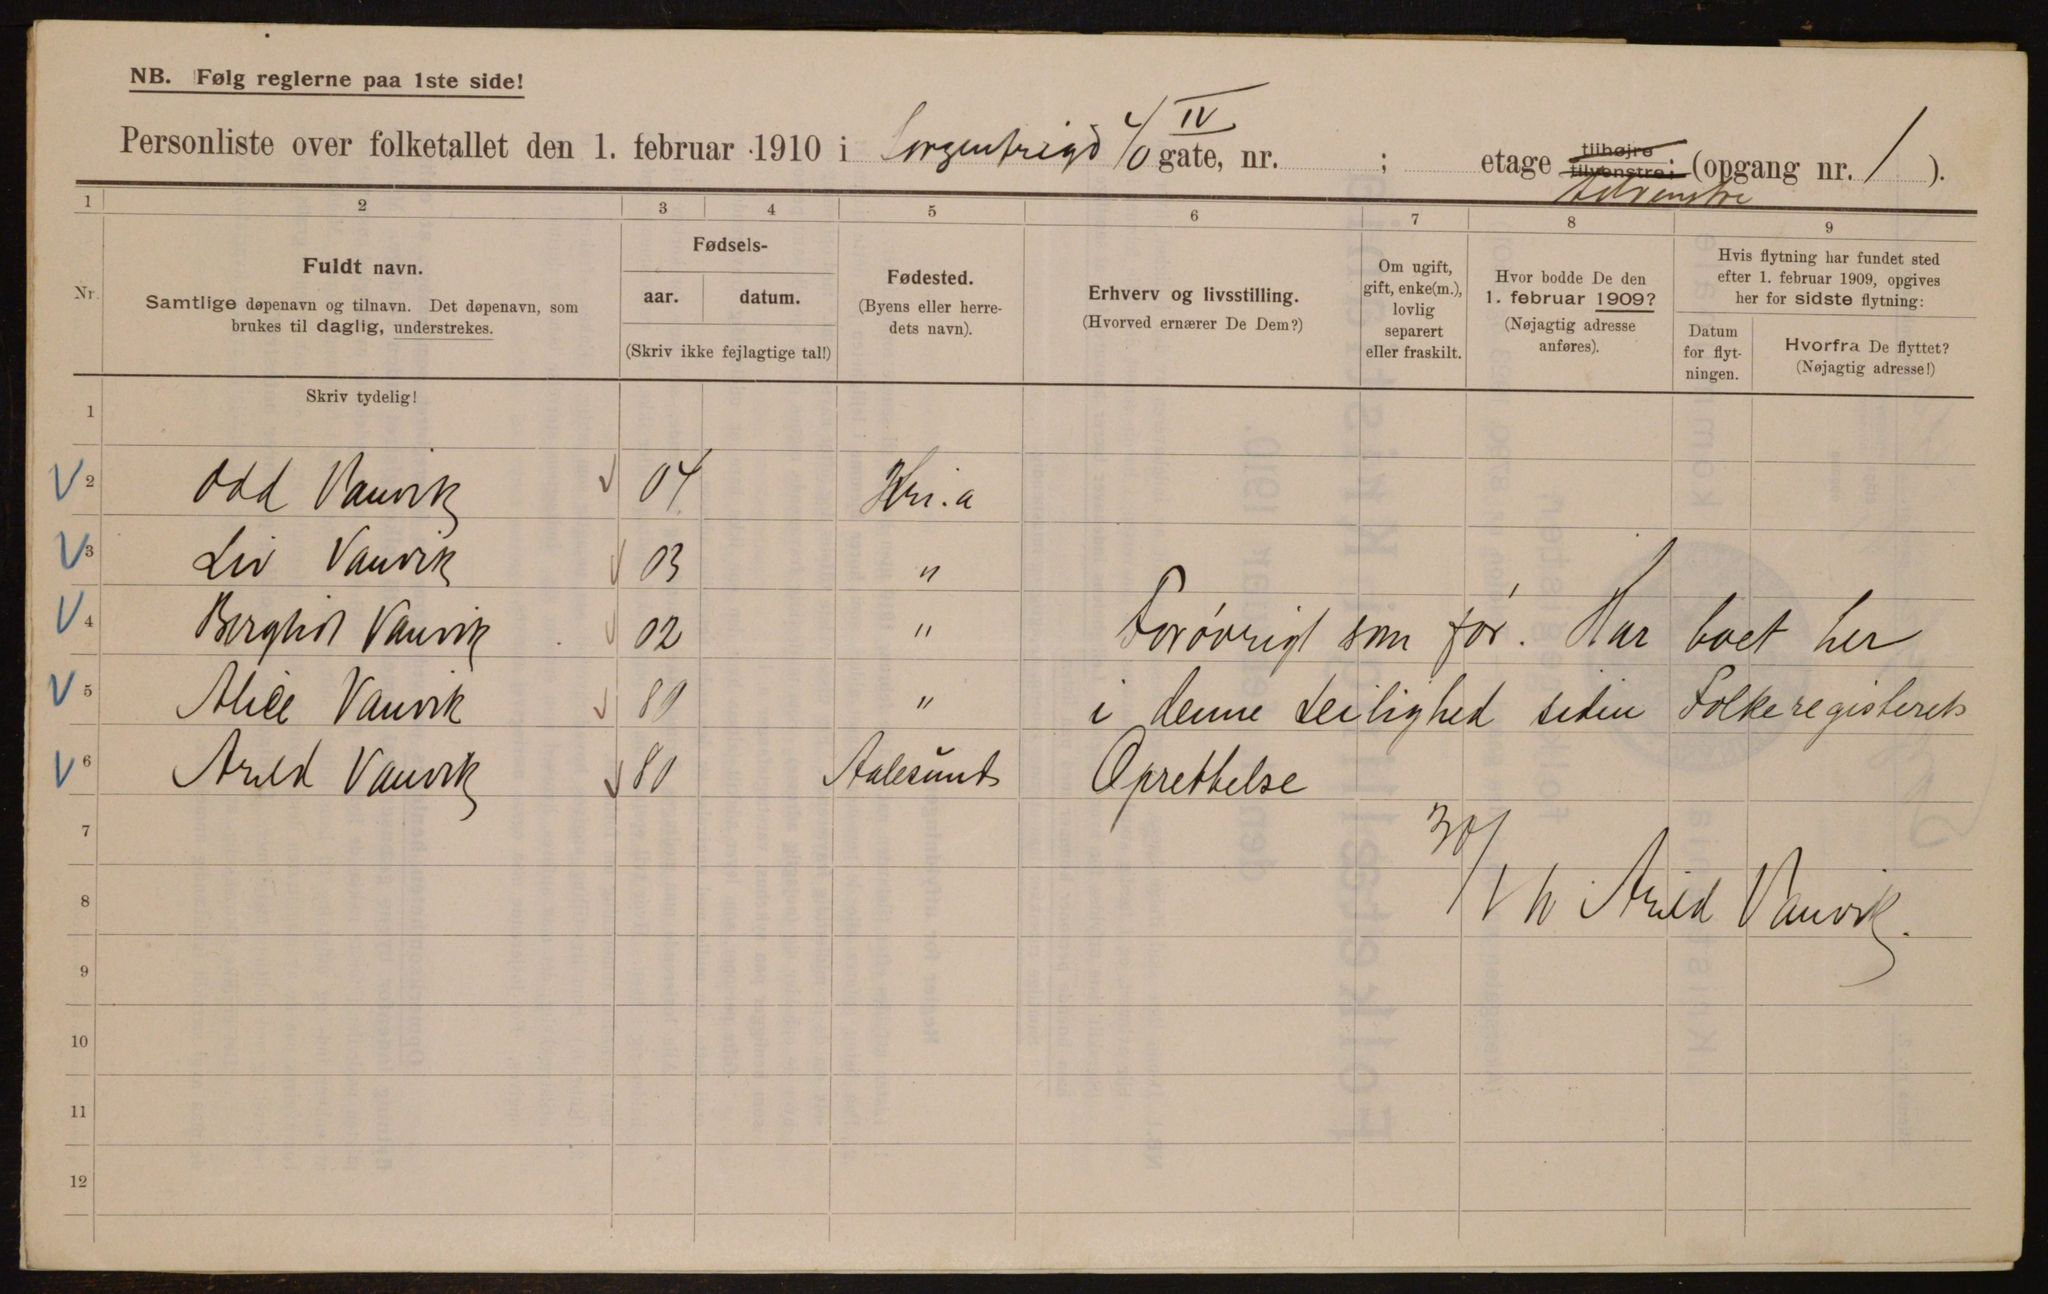 NB. Følg reglerne paa 1ste side!
Personliste over folketallet den 1. februar 1910 i Sorgenfrigd 4/0 IV gate, nr. ; etage tilhøjre tilvenstre; (opgang nr. 1 ).
tilvenstre
1 2 3 4 5 6 7 8 9
Nr.
Fuldt navn.
Samtlige døpenavn og tilnavn. Det døpenavn, som
brukes til daglig, understrekes.
Fødsels-
aar. datum.
(Skriv ikke fejlagtige tal!)
Fødested.
(Byens eller herre-
dets navn).
Erhverv og livsstilling.
(Hvorved ernærer De Dem?)
Om ugift,
gift, enke(m.),
lovlig
separert
eller fraskilt.
Hvor bodde De den
1. februar 1909?
(Nøjagtig adresse
anføres).
Hvis flytning har fundet sted
efter 1. februar 1909, opgives
her for sidste flytning:
Datum
for flyt-
ningen.
Hvorfra De flyttet?
(Nøjagtig adresse!)
Skriv tydelig!
1
2 Odd Vanvik 04 Kri.a
3 Liv Vanvik 03 "
4 Berghot Vanvik 02 " Forøvrigt som før. Har boet her
5 Alice Vanvik 80 " i denne Leilighed siden Folkeregisterets
6 Arild Vanvik 80 Aalesund Oprettelse
7
8 30/1 10 Arild Vanvik.
9
10
11
12